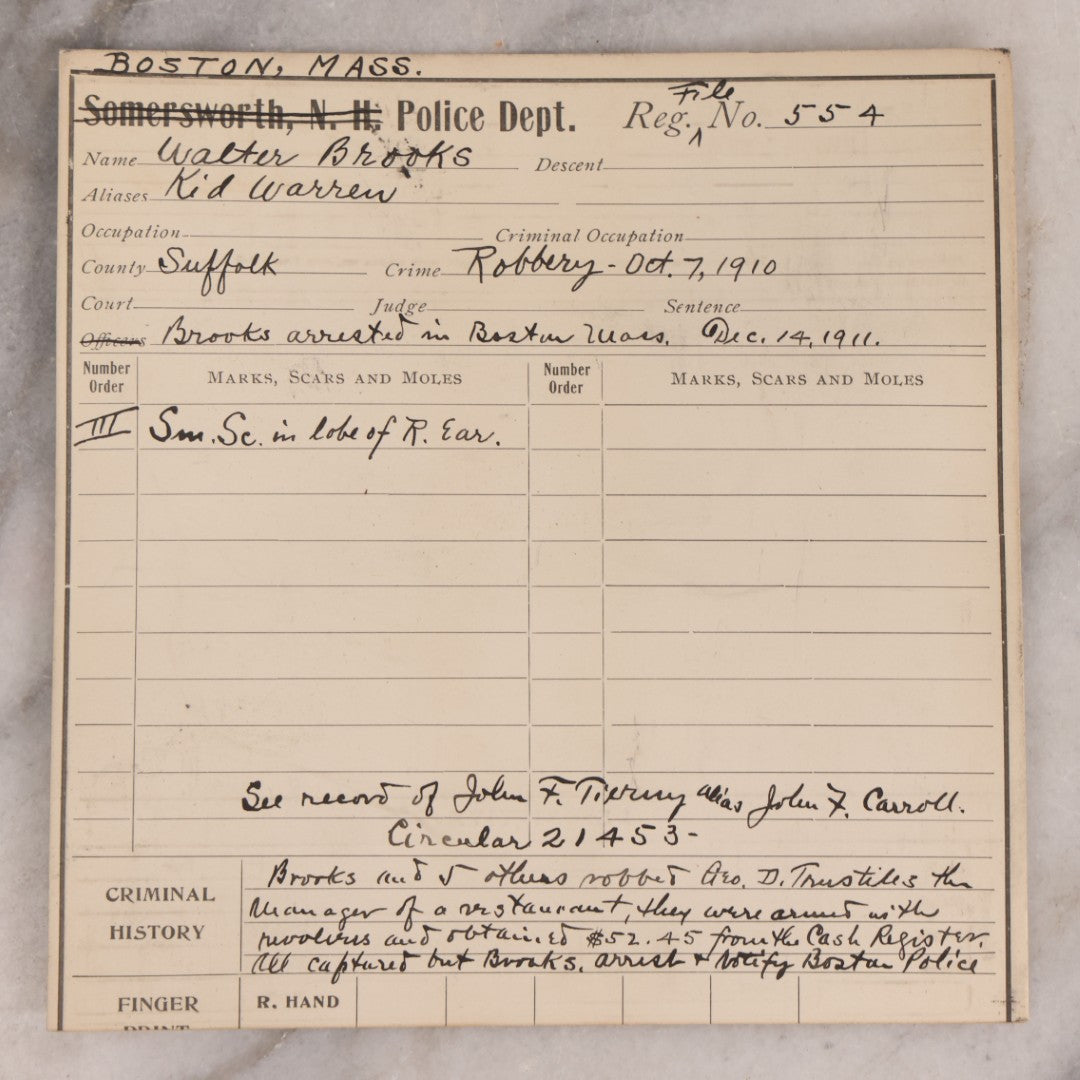 BOSTON, MASS.
Somersworth, N. H. Police Dept. Reg. File No. 554
Name Walter Brooks Descent
Aliases Kid Warren
Occupation Criminal Occupation
County Suffolk Crime Robbery - Oct. 7, 1910
Court Judge Sentence
Officers Brooks arrested in Boston Mass. Dec. 14, 1911.
Number Order MARKS, SCARS AND MOLES Number Order MARKS, SCARS AND MOLES
III Sm. Sc. in lobe of R. Ear.
See record of John F. Tierny alias John F. Carroll.
Circular 21453-
CRIMINAL HISTORY
Brooks and 5 others robbed Geo. D. Trustiles the
Manager of a restaurant, they were armed with
revolvers and obtained $52.45 from the Cash Register.
All captured but Brooks. arrest & Notify Boston Police
FINGER PRINT R. HAND